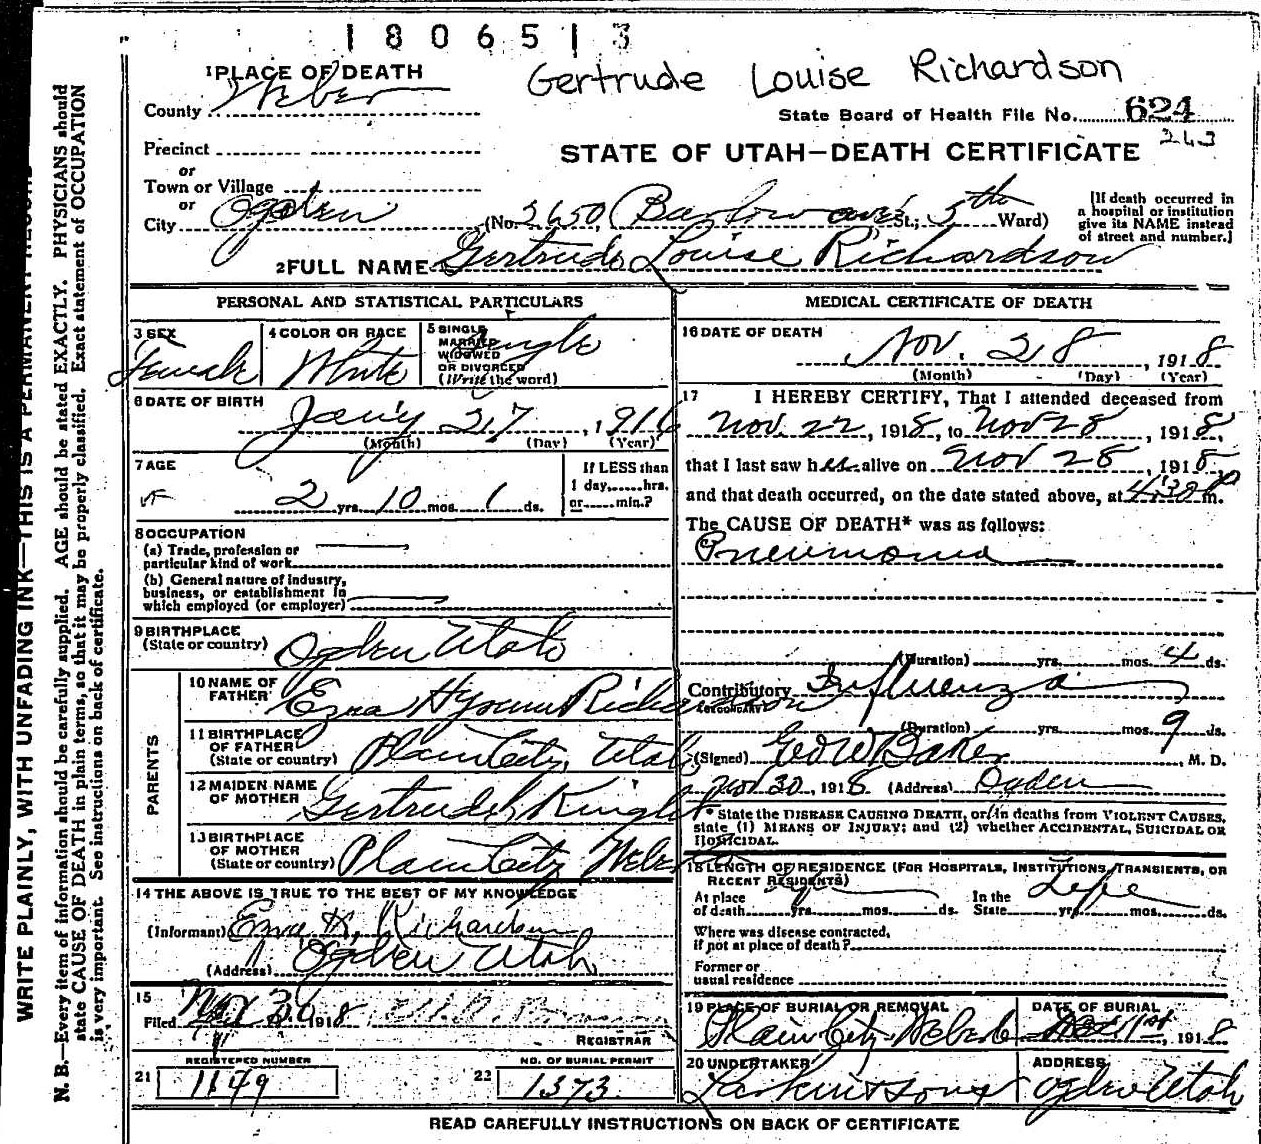 1806513
Gertrude Louise Richardson
1 PLACE OF DEATH
County Weber
State Board of Health File No. 624
243
Precinct
or
Town or Village
or
City Ogden
STATE OF UTAH—DEATH CERTIFICATE
(No. 2650 Barlow ave St.; 5th Ward)
[If death occurred in
a hospital or institution
give its NAME instead
of street and number.]
2 FULL NAME Gertrude Louise Richardson
PERSONAL AND STATISTICAL PARTICULARS
3 SEX
Female
4 COLOR OR RACE
White
5 SINGLE
MARRIED
WIDOWED
OR DIVORCED
(Write the word)
Single
6 DATE OF BIRTH
Jan'y 27, 1916
(Month) (Day) (Year)
7 AGE
2 yrs. 10 mos. 1 ds.
If LESS than
1 day,......hrs.
or......min.?
8 OCCUPATION
(a) Trade, profession or
particular kind of work
(b) General nature of industry,
business, or establishment in
which employed (or employer)
9 BIRTHPLACE
(State or country) Ogden Utah
PARENTS
10 NAME OF
FATHER Ezra Hyrum Richardson
11 BIRTHPLACE
OF FATHER
(State or country) Plain City, Utah
12 MAIDEN NAME
OF MOTHER Gertrude Knight
13 BIRTHPLACE
OF MOTHER
(State or country) Plain City Weber
14 THE ABOVE IS TRUE TO THE BEST OF MY KNOWLEDGE
(Informant) Ezra H. Richardson
(Address) Ogden Utah
15
Filed Nov 30 1918
REGISTRAR
REGISTERED NUMBER
21 1149
NO. OF BURIAL PERMIT
22 1373
MEDICAL CERTIFICATE OF DEATH
16 DATE OF DEATH
Nov. 28, 1918
(Month) (Day) (Year)
17 I HEREBY CERTIFY, That I attended deceased from
Nov. 22, 1918, to Nov 28, 1918,
that I last saw her alive on Nov 28, 1918
and that death occurred, on the date stated above, at 4:30 P m.
The CAUSE OF DEATH* was as follows:
Pneumonia
(Duration) yrs. mos. 4 ds.
Contributory Influenza
(SECONDARY)
(Duration) yrs. mos. 9 ds.
(Signed) Geo W Baker, M. D.
Nov 30, 1918 (Address) Ogden
* State the DISEASE CAUSING DEATH, or in deaths from VIOLENT CAUSES,
state (1) MEANS OF INJURY; and (2) whether ACCIDENTAL, SUICIDAL OR
HOMICIDAL.
18 LENGTH OF RESIDENCE (FOR HOSPITALS, INSTITUTIONS, TRANSIENTS, OR
RECENT RESIDENTS)
At place
of death yrs. mos. ds.
In the
State yrs. mos. ds.
Life
Where was disease contracted,
if not at place of death?
Former or
usual residence
19 PLACE OF BURIAL OR REMOVAL
Plain City Weber
DATE OF BURIAL
Dec 1st, 1918
20 UNDERTAKER
Larkin & Sons
ADDRESS
Ogden Utah
READ CAREFULLY INSTRUCTIONS ON BACK OF CERTIFICATE
WRITE PLAINLY, WITH UNFADING INK—THIS IS A PERMANENT RECORD
N. B.—Every item of information should be carefully supplied. AGE should be stated EXACTLY. PHYSICIANS should
state CAUSE OF DEATH in plain terms, so that it may be properly classified. Exact statement of OCCUPATION
is very important. See instructions on back of certificate.